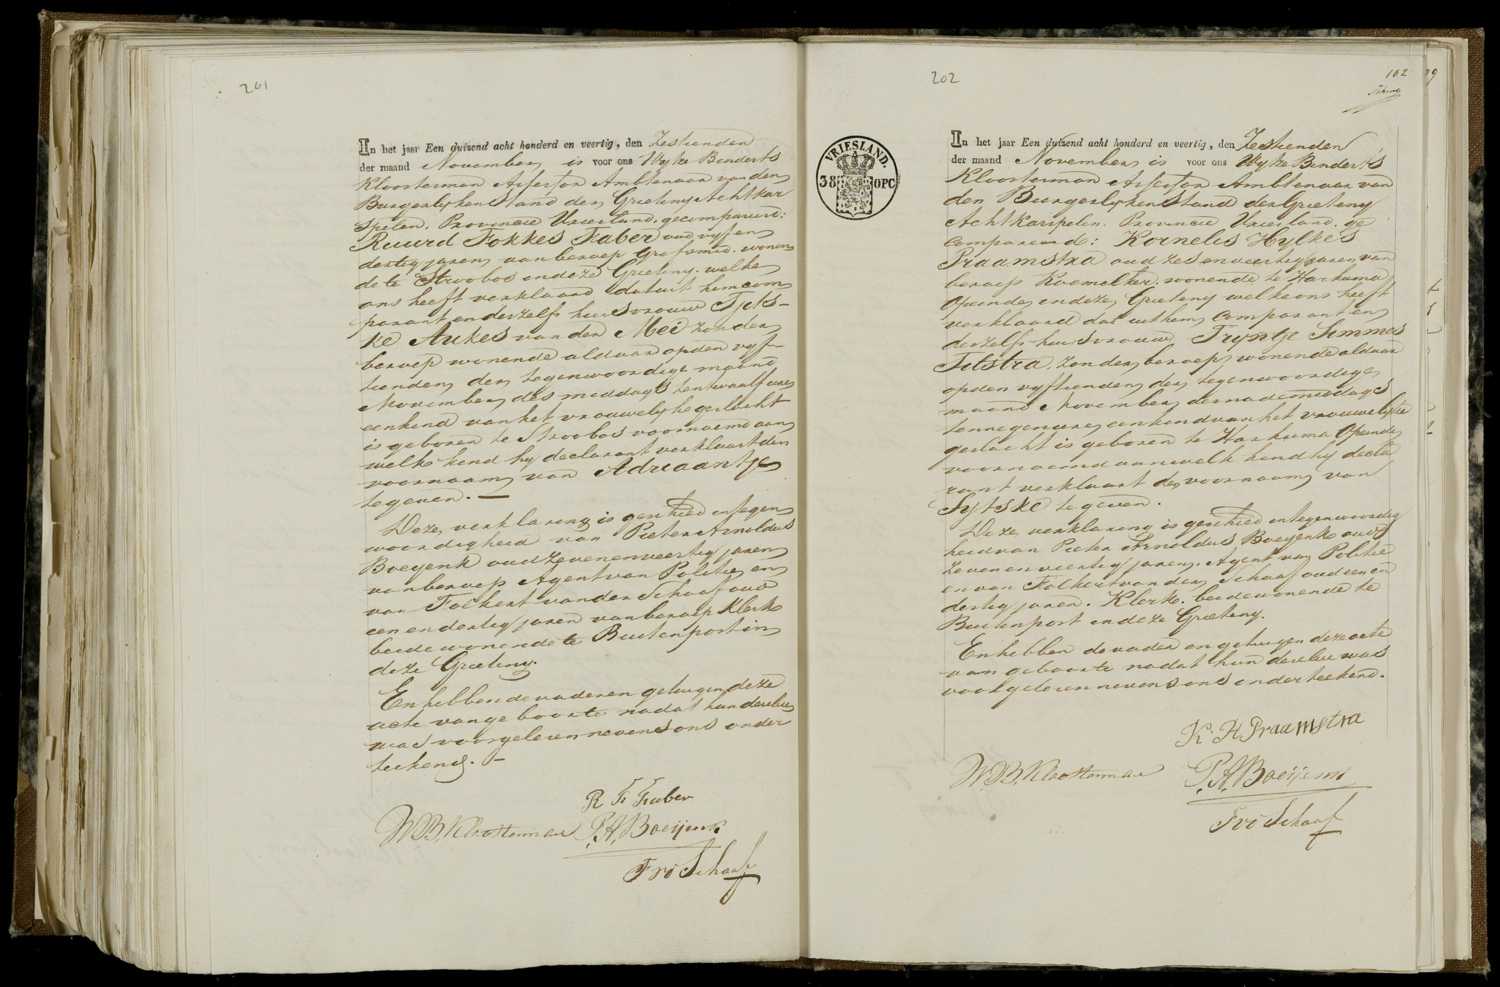 201
In het jaar Een duizend acht honderd en veertig, den Zestienden
der maand November is voor ons Wytze Binderts
Kloosterman Assessor Ambtenaar van den
Burgerlyken Stand der Grieteny Achtkar
spelen, Provincie Vriesland, gecompareerd:
Ruurd Fokkes Faber oud vyf en
dertig jaren van beroep Grofsmid, wonen
de te Stroobos in deze Grieteny, welke
ons heeft verklaard dat uit hem com
parant en derzelfs huisvrouw Tjits-
ke Aukes van der Meè zonder
beroep wonende aldaar op den vyf-
tienden der tegenwoordige maand
November des middags ten twaalf ure
een kind van het vrouwelyke geslacht
is geboren te Stroobos voornoemd aan
welk kind hy declarant verklaart den
voornaam van Adriaantje
te geven. —
Deze verklaring is geschied in tegen
woordigheid van Pieter Arnoldus
Boeyenk oud zeven en veertig jaren
van beroep Agent van Politie en
van Folkert van der Schaaf oud
een en dertig jaren van beroep Klerk
beide wonende te Buitenpost in
deze Grieteny.
En hebben de vader en getuigen deze
acte van geboorte nadat hun dezelve
was voorgelezen nevens ons onder
teekend. —
R F Faber
WBKloosterman P.A. Boeijenk
F v d Schaaf
202
102
VRIESLAND.
38 OPC
In het jaar Een duizend acht honderd en veertig, den Zestienden
der maand November is voor ons Wytze Binderts
Kloosterman Assessor Ambtenaar van
den Burgerlyken Stand der Grieteny
Achtkarspelen, Provincie Vriesland, ge
compareerd: Kornelis Hylkes
Praamstra oud zes en veertig jaren, van
beroep Koemelker, wonende te Harkema
Opeinde in deze Grieteny welke ons heeft
verklaard dat uit hem Comparant en
derzelfs huisvrouw, Tryntje Simmes
Tilstra, zonder beroep, wonende aldaar
op den vyftienden der tegenwoordige
maand November des nademiddags
ten negen ure een kind van het vrouwelyke
geslacht is geboren te Harkema Opeinde
voornoemd aan welk kind hy decla
rant verklaart den voornaam van
Sytske te geven.
Deze verklaring is geschied in tegenwoordig
heid van Pieter Arnoldus Boeyenk oud
zeven en veertig jaren, Agent van Politie
en van Folkert van der Schaaf oud een en
dertig jaren, Klerk, beide wonende te
Buitenpost in deze Grieteny.
En hebben de vader en getuigen deze acte
van geboorte nadat hun dezelve was
voorgelezen nevens ons onderteekend.
K. H. Praamstra
WBKloosterman P.A. Boeijenk
F v d Schaaf